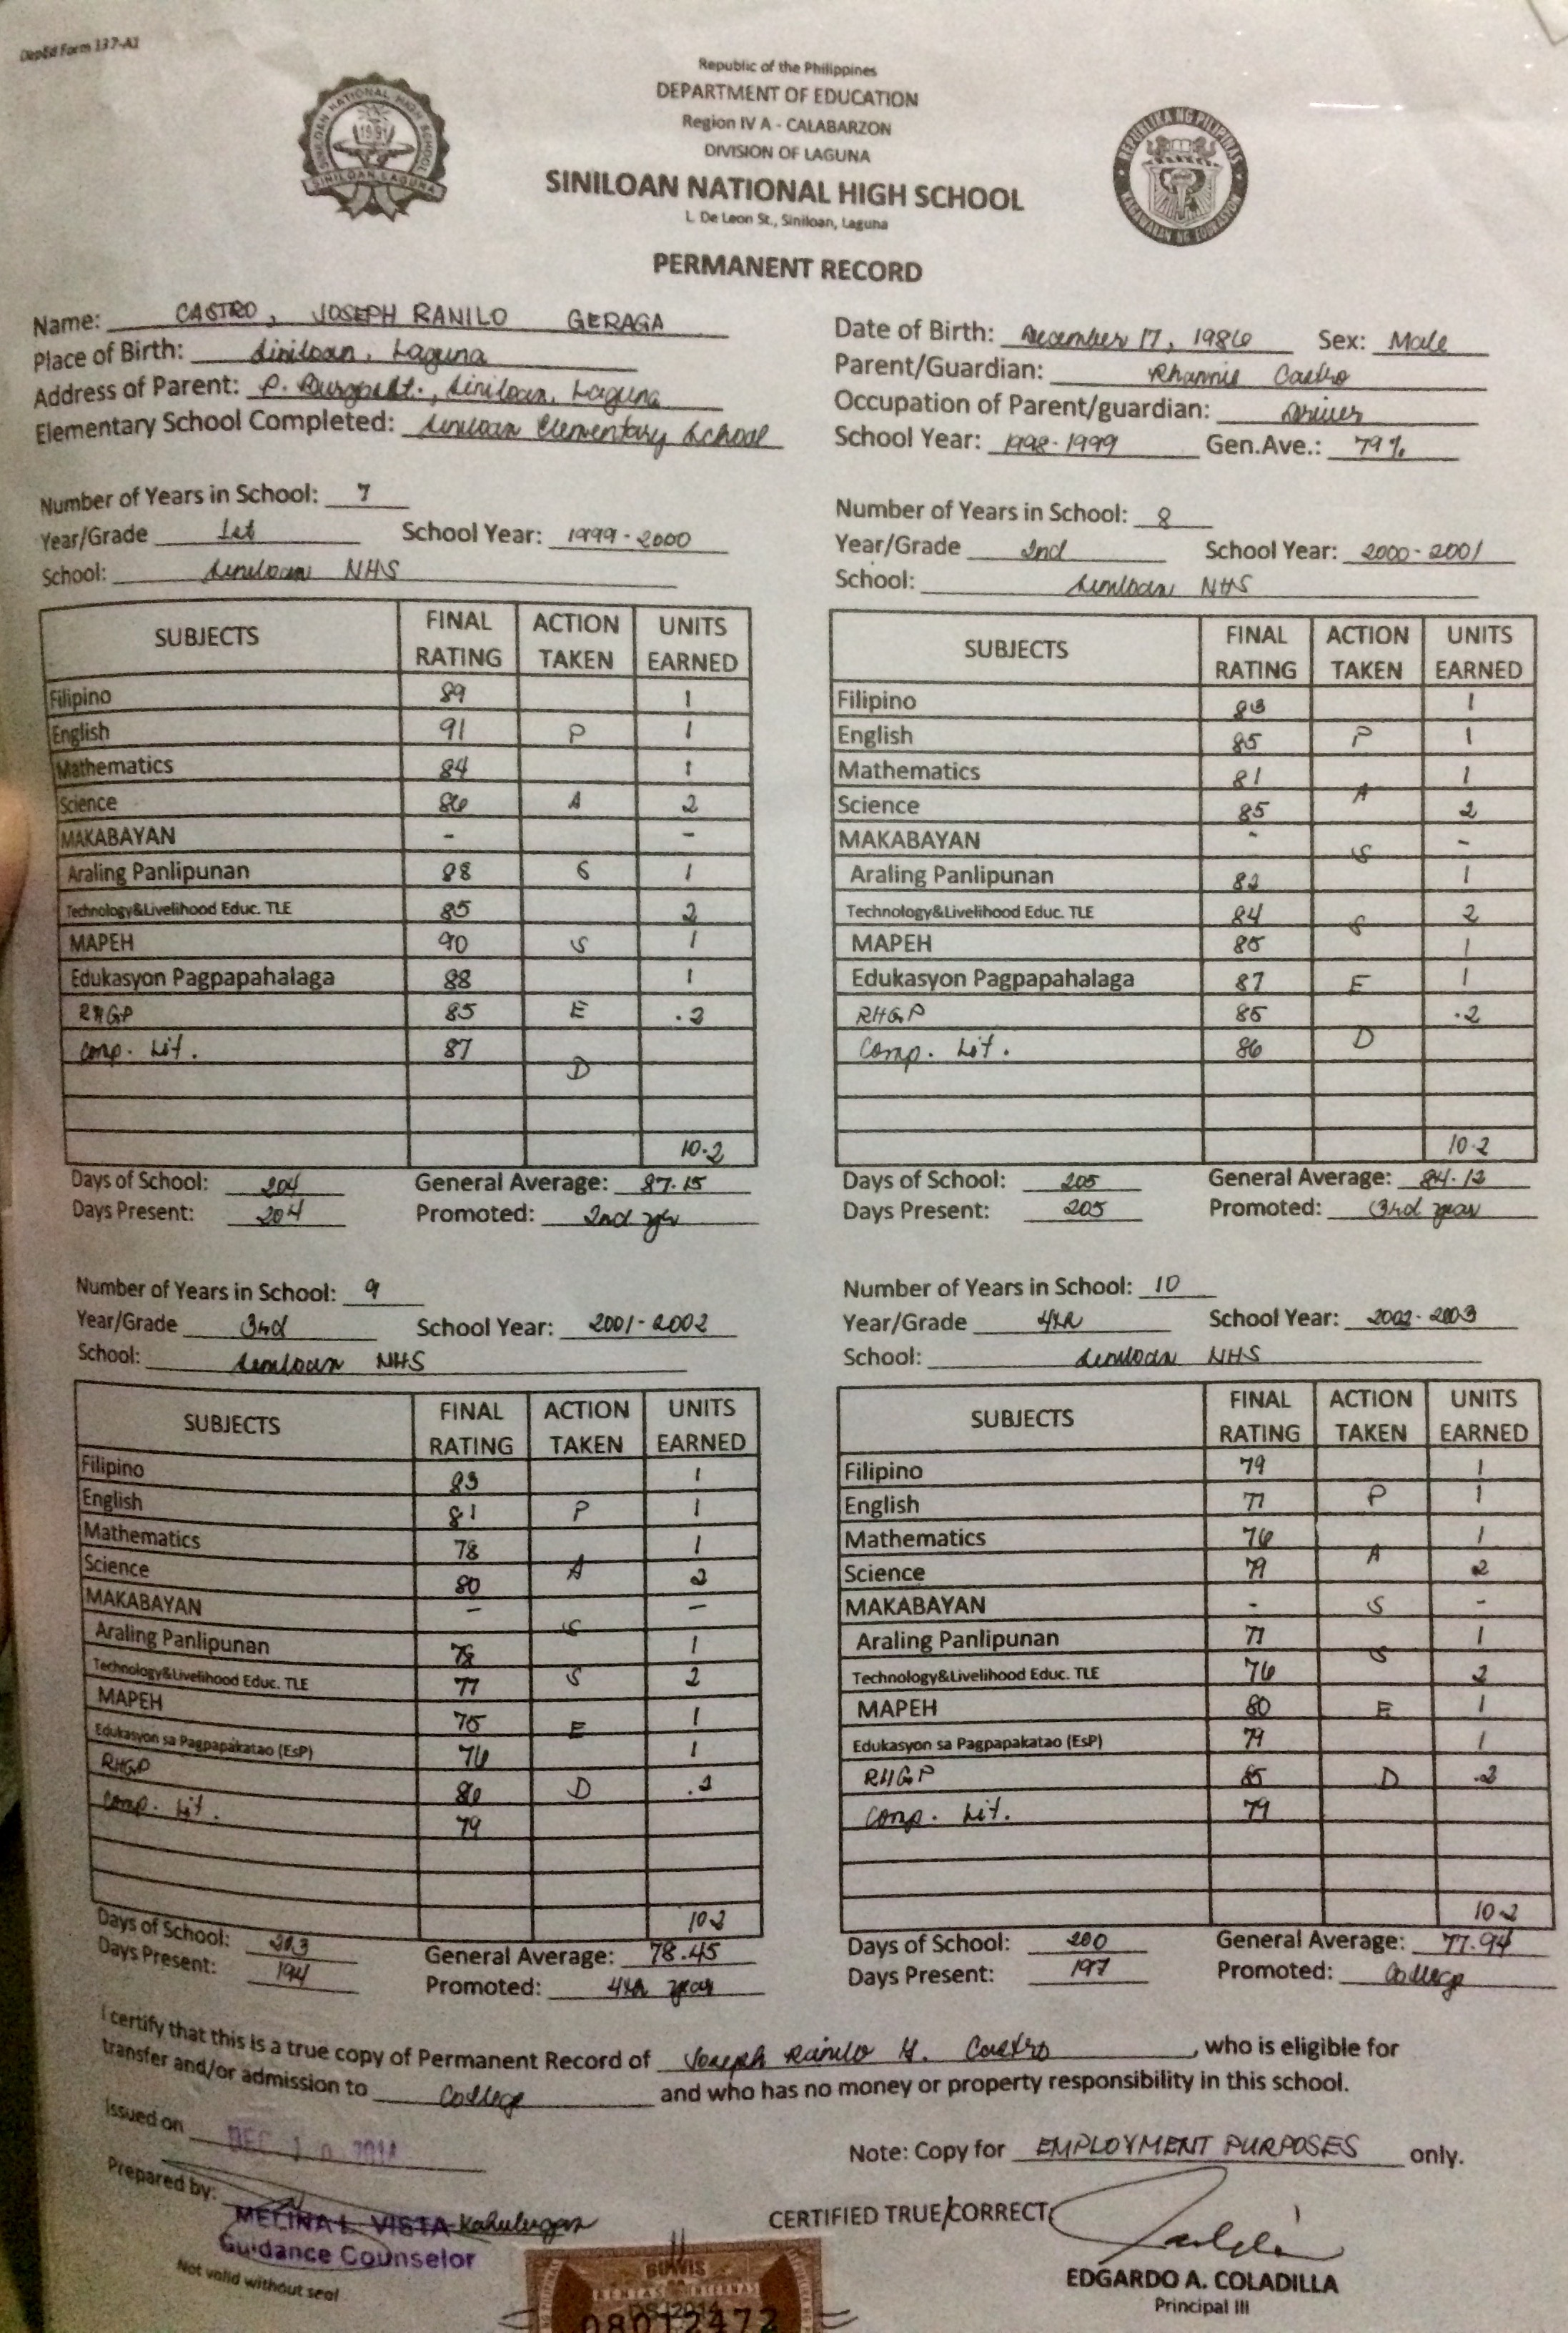 DepEd Form 137-A1
Republic of the Philippines
DEPARTMENT OF EDUCATION
Region IV A - CALABARZON
DIVISION OF LAGUNA
SINILOAN NATIONAL HIGH SCHOOL
L. De Leon St., Siniloan, Laguna
PERMANENT RECORD
SINILOAN NATIONAL HIGH SCHOOL
SINILOAN LAGUNA
REPUBLIKA NG PILIPINAS
KAGAWARAN NG EDUKASYON
Name: CASTRO, JOSEPH RANILO GERAGA
Place of Birth: Siniloan, Laguna
Address of Parent: P. Burgos St., Siniloan, Laguna
Elementary School Completed: Siniloan Elementary School
Date of Birth: December 17, 1986 Sex: Male
Parent/Guardian: Rhannie Castro
Occupation of Parent/guardian: Driver
School Year: 1998-1999 Gen.Ave.: 79%
Number of Years in School: 7
Year/Grade 1st School Year: 1999-2000
School: Siniloan NHS
SUBJECTS FINAL RATING ACTION TAKEN UNITS EARNED
Filipino 89 1
English 91 P 1
Mathematics 84 1
Science 86 A 2
MAKABAYAN - -
Araling Panlipunan 88 S 1
Technology&Livelihood Educ. TLE 85 2
MAPEH 90 S 1
Edukasyon Pagpapahalaga 88 1
RHGP 85 E .2
Comp. Lit. 87
D
10.2
Days of School: 204 General Average: 87.15
Days Present: 204 Promoted: 2nd yr
Number of Years in School: 8
Year/Grade 2nd School Year: 2000-2001
School: Siniloan NHS
SUBJECTS FINAL RATING ACTION TAKEN UNITS EARNED
Filipino 83 1
English 85 P 1
Mathematics 81 1
Science 85 A 2
MAKABAYAN - -
S
Araling Panlipunan 82 1
Technology&Livelihood Educ. TLE 84 S 2
MAPEH 85 1
Edukasyon Pagpapahalaga 87 E 1
RHGP 85 .2
Comp. Lit. 86 D
10.2
Days of School: 205 General Average: 84.12
Days Present: 205 Promoted: 3rd year
Number of Years in School: 9
Year/Grade 3rd School Year: 2001-2002
School: Siniloan NHS
SUBJECTS FINAL RATING ACTION TAKEN UNITS EARNED
Filipino 83 1
English 81 P 1
Mathematics 78 1
Science 80 A 2
MAKABAYAN - -
Araling Panlipunan 78 S 1
Technology&Livelihood Educ. TLE 77 S 2
MAPEH 75 E 1
Edukasyon sa Pagpapakatao (EsP) 76 1
RHGP 86 D .2
Comp. Lit. 79
10.2
Days of School: 203 General Average: 78.45
Days Present: 194 Promoted: 4th year
Number of Years in School: 10
Year/Grade 4th School Year: 2002-2003
School: Siniloan NHS
SUBJECTS FINAL RATING ACTION TAKEN UNITS EARNED
Filipino 79 1
English 77 P 1
Mathematics 76 1
Science 79 A 2
MAKABAYAN - S -
Araling Panlipunan 77 1
Technology&Livelihood Educ. TLE 76 S 2
MAPEH 80 E 1
Edukasyon sa Pagpapakatao (EsP) 79 1
RHGP 85 D .2
Comp. Lit. 79
10.2
Days of School: 200 General Average: 77.94
Days Present: 197 Promoted: College
I certify that this is a true copy of Permanent Record of Joseph Ranilo G. Castro, who is eligible for
transfer and/or admission to College and who has no money or property responsibility in this school.
Issued on DEC 10 2014
Note: Copy for EMPLOYMENT PURPOSES only.
Prepared by:
MELINA L. VISTA
Guidance Counselor
Not valid without seal
CERTIFIED TRUE/CORRECT
EDGARDO A. COLADILLA
Principal III
RENTAS INTERNAS
08012472